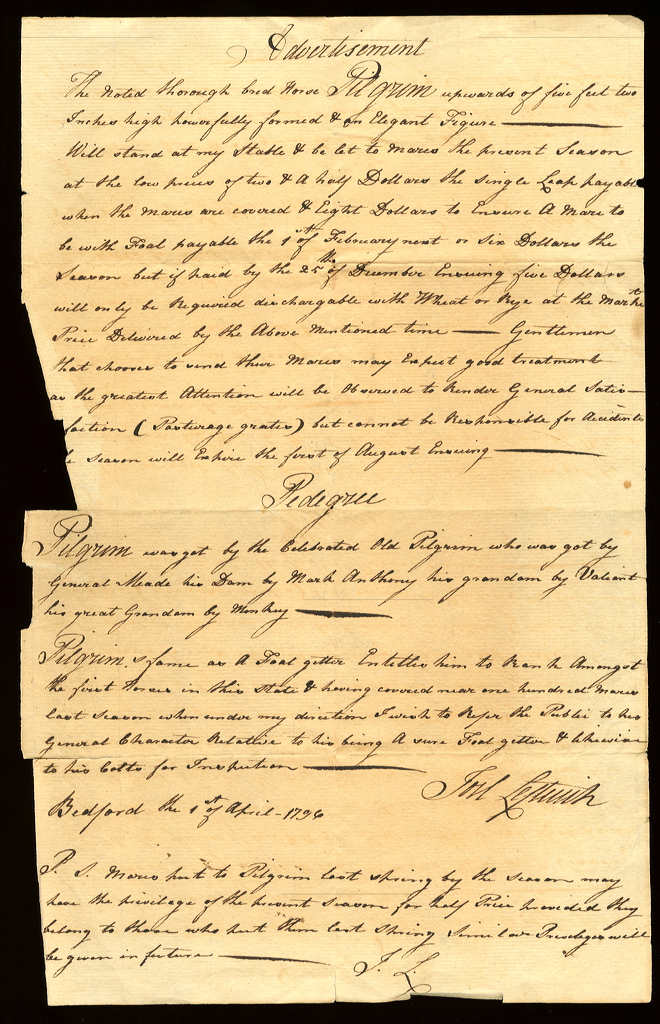 Advertisement
The Noted thorough bred Horse Pilgrim upwards of five feet two
Inches high powerfully formed & an Elegant Figure
Will stand at my Stable & be let to Mares the present Season
at the low prices of two & A half Dollars the single Leap payable
when the mares are covered & Eight Dollars to Ensure A Mare to
be with Foal payable the 1st of February next or Six Dollars the
Season but if paid by the 25th of December Ensuing five Dollars
will only be Required dischargable with Wheat or Rye at the Markt
Price Delivered by the Above Mentioned time — Gentlemen
that chooses to send their Mares may Expect good treatment
as the greatest Attention will be Observed to Render General Satis-
faction (Pasturage gratis) but cannot be Responsible for Accidents
e Season will Expire the first of August Ensuing
Pedegree
Pilgrim was got by the Celebrated Old Pilgrim who was got by
General Meade his Dam by Mark Anthony his grandam by Valiant
his great Grandam by Monkey
Pilgrim,s fame as A Foal getter Entitles him to Rank Amongst
the first Horses in this State & having covered near one hundred Mares
last Season when under my direction I wish to Refer the Public to his
General Character Relative to his being A sure Foal getter & likewise
to his Colts for Inspection
Joel Leftwich
Bedford the 1st of April - 1796
P. S. Mares put to Pilgrim last spring by the season may
have the privilage of the present season for half Price provided they
belong to those who put them last Spring Similar Privileges will
be given in future
J. L.